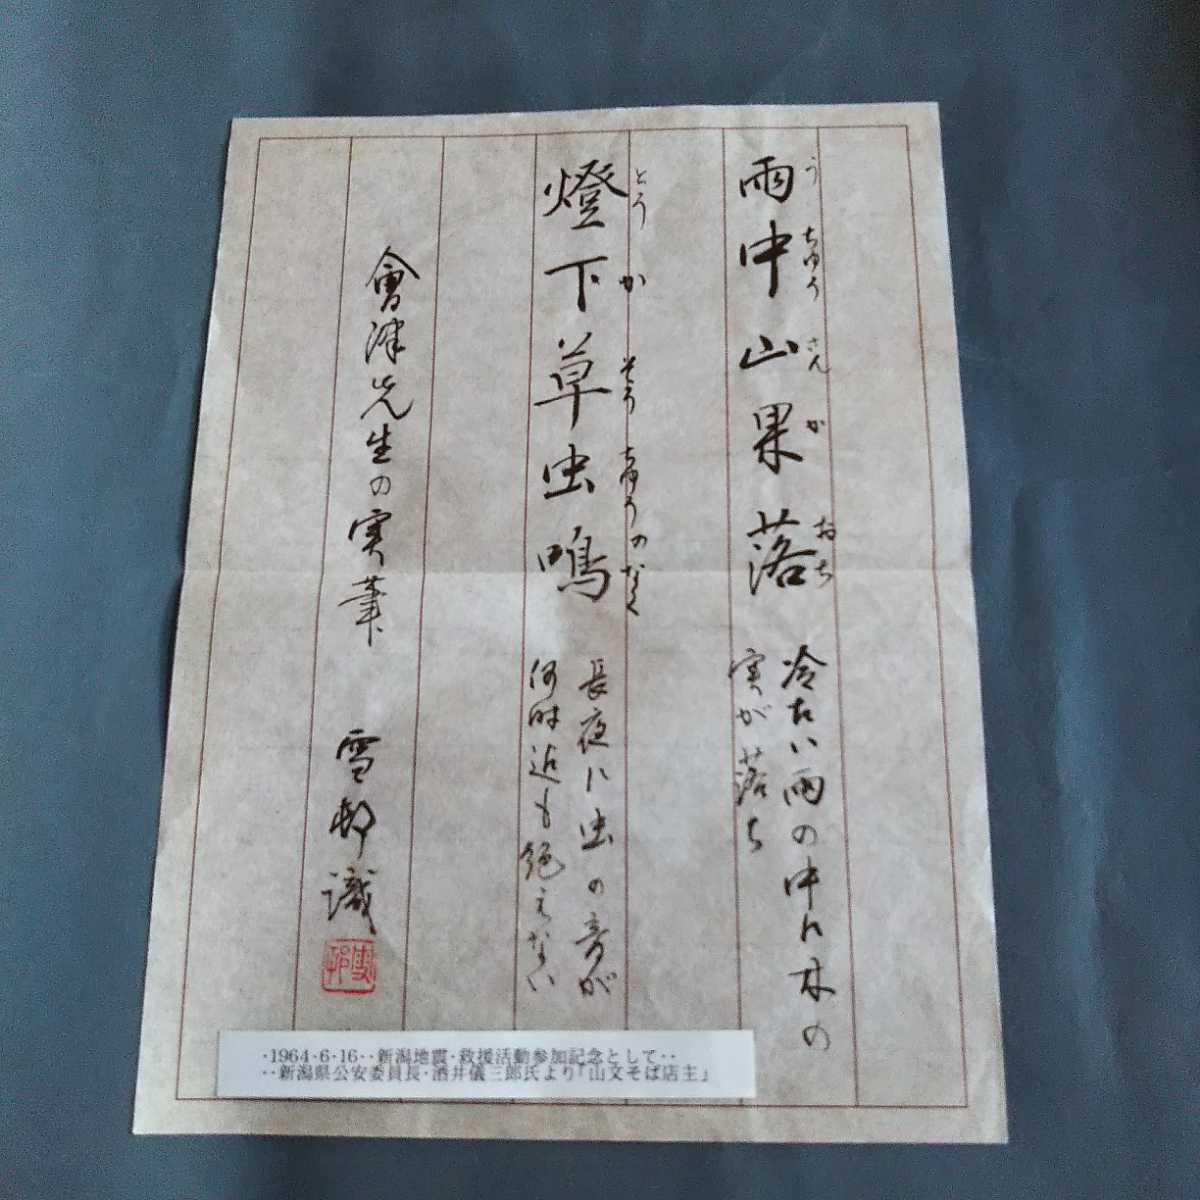 雨中山果落
うちゅうさんかおち
冷たい雨の中に木の
実が落ち
燈下草虫鳴
とうかそうちゅうのなく
長夜に虫の音が
何時迄も絶えない
會津先生の実筆 雪邨識
雪邨
・1964・6・16・・新潟地震・救援活動参加記念として・・
・・新潟県公安委員長・酒井儀三郎氏より「山文そば店主」